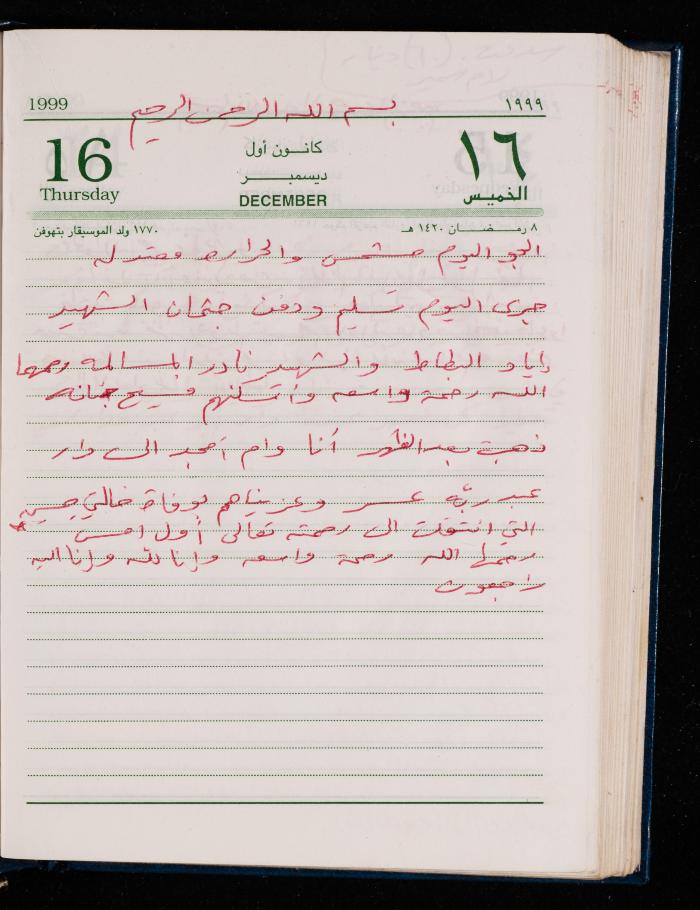 1999 بسم الله الرحمن الرحيم ١٩٩٩
16 كانــون أول ١٦
Thursday ديسمبــــر الخميس
DECEMBER
٨ رمــضــــان ١٤٢٠ هـ ١٧٧٠ ولد الموسيقار بتهوفن
الجو اليوم مشمس والحراره معتدله
جرى اليوم تسليم ودفن جثمان الشهيد
إياد البطاط والشهيد نادر المسالمه رحمهما
الله رحمة واسعه وأسكنهم فسيح جنانه
ذهبت بعد الظهر أنا وام أمجد الى دار
عبد ربه عمر وعزيناهم بوفاة خالتي
التي انتقلت الى رحمته تعالى أول امس
رحمها الله رحمة واسعه وإنا لله وإنا اليه
راجعون